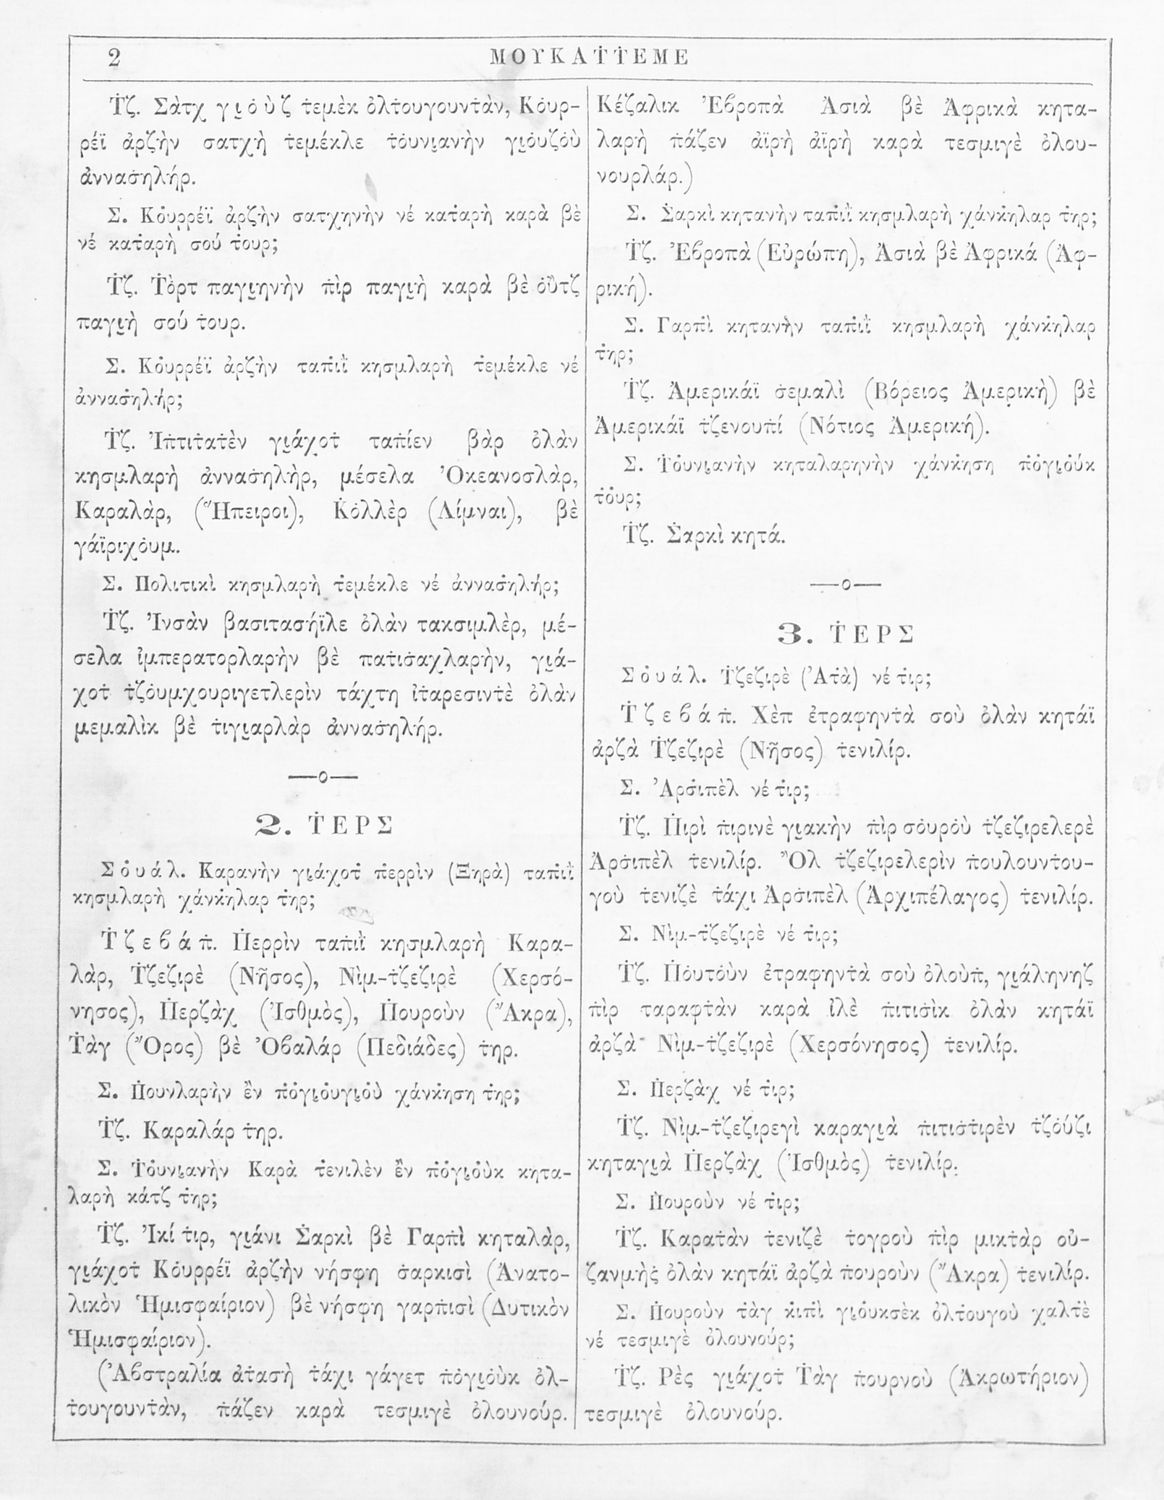 2
ΜΟΥΚΑΤΤΕΜΕ
Τζ. Σὰτχ γι̯ὸὺζ τεμὲκ ὀλτουγουντὰν, Κὸυρ-
ρέϊ ἀρζὴν σατχὴ τεμέκλε τὸυνι̯ανὴν γι̯ὸυζὸὺ
ἀννασηλήρ.
Σ. Κὸυρρέϊ ἀρζὴν σατχηνὴν νέ κατὰρὴ καρὰ βὲ
νέ κατὰρὴ σού τουρ;
Τζ. Τὸρτ παγι̯ηνὴν πὶρ παγι̯ὴ καρὰ βὲ ὀὺτζ
παγι̯ὴ σού τουρ.
Σ. Κὸυρρέϊ ἀρζὴν ταπιῒ κησμλαρὴ τεμέκλε νέ
ἀννασηλήρ;
Τζ. Ἰπτιτατὲν γι̯άχοτ ταπίεν βὰρ ὀλὰν
κησμλαρὴ ἀννασηλὴρ, μέσελα Ὀκεανοσλὰρ,
Καραλὰρ, (Ἤπειροι), Κὸλλὲρ (Λίμναι), βὲ
γάϊριχὸυμ.
Σ. Πολιτικὶ κησμλαρὴ τεμέκλε νέ ἀννασηλήρ;
Τζ. Ἰνσὰν βασιτασήϊλε ὀλὰν τακσιμλὲρ, μέ-
σελα ἰμπερατορλαρὴν βὲ πατισαχλαρὴν, γι̯ά-
χοτ τζὸυμχουριγετλερὶν τάχτη ἰταρεσιντὲ ὀλὰν
μεμαλὶκ βὲ τιγι̯αρλὰρ ἀννασηλήρ.
2. ΤΕΡΣ
Σὸυάλ. Καρανὴν γι̯άχοτ περρὶν (Ξηρὰ) ταπιῒ
κησμλαρὴ χάνκηλαρ τηρ;
Τζεβάπ. Περρὶν ταπιῒ κησμλαρὴ Καρα-
λὰρ, Τζεζιρὲ (Νῆσος), Νὶμ-τζεζιρὲ (Χερσό-
νησος), Περζὰχ (Ἰσθμὸς), Πουροὺν (Ἄκρα),
Τὰγ (Ὄρος) βὲ Ὀβαλάρ (Πεδιάδες) τηρ.
Σ. Πουνλαρὴν ἒν πὸγι̯ὸυγι̯ὸὺ χάνκηση τηρ;
Τζ. Καραλάρ τηρ.
Σ. Τὸυνι̯ανὴν Καρὰ τενιλὲν ἒν πὸγι̯ὸὺκ κητα-
λαρὴ κάτζ τηρ;
Τζ. Ἰκί τιρ, γι̯άνι Σαρκὶ βὲ Γαρπὶ κηταλὰρ,
γι̯άχοτ Κὸυρρέϊ ἀρζὴν νήσφη σαρκισὶ (Ἀνατο-
λικὸν Ἡμισφαίριον) βὲ νήσφη γαρπισὶ (Δυτικὸν
Ἡμισφαίριον).
(Ἀβστραλία ἀτασὴ τάχι γάγετ πὸγι̯ὸὺκ ὀλ-
τουγουντὰν, πάζεν καρὰ τεσμιγὲ ὀλουνούρ.
Κέζαλικ Ἐβροπὰ Ἀσιὰ βὲ Ἀφρικὰ κητα-
λαρὴ πάζεν ἀϊρὴ ἀϊρὴ καρὰ τεσμιγὲ ὀλου-
νουρλάρ.)
Σ. Σαρκὶ κητανὴν ταπιῒ κησμλαρὴ χάνκηλαρ τηρ;
Τζ. Ἐβροπὰ (Εὐρώπη), Ἀσιὰ βὲ Ἀφρικά (Ἀφ-
ρική).
Σ. Γαρπὶ κητανὴν ταπιῒ κησμλαρὴ χάνκηλαρ
τηρ;
Τζ. Ἀμερικάϊ σεμαλὶ (Βόρειος Ἀμερικὴ) βὲ
Ἀμερικάϊ τζενουπί (Νότιος Ἀμερική).
Σ. Τὸυνι̯ανὴν κηταλαρηνὴν χάνκηση πὸγι̯ὸὺκ
τὸυρ;
Τζ. Σαρκὶ κητά.
3. ΤΕΡΣ
Σὸυάλ. Τζεζιρὲ (Ἀτὰ) νέ τιρ;
Τζεβάπ. Χὲπ ἐτραφηντὰ σοὺ ὀλὰν κητάϊ
ἀρζὰ Τζεζιρὲ (Νῆσος) τενιλίρ.
Σ. Ἀρσιπὲλ νέ τιρ;
Τζ. Πιρὶ πιρινὲ γι̯ακὴν πὶρ σὸυρὸὺ τζεζιρελερὲ
Ἀρσιπὲλ τενιλίρ. Ὂλ τζεζιρελερὶν πουλουντου-
γοὺ τενιζὲ τάχι Ἀρσιπὲλ (Ἀρχιπέλαγος) τενιλίρ.
Σ. Νὶμ-τζεζιρὲ νέ τιρ;
Τζ. Πὸυτὸὺν ἐτραφηντὰ σοὺ ὀλοὺπ, γι̯άληνηζ
πὶρ ταραφτὰν καρὰ ἰλὲ πιτισὶκ ὀλὰν κητάϊ
ἀρζὰ Νὶμ-τζεζιρὲ (Χερσόνησος) τενιλίρ.
Σ. Περζὰχ νέ τιρ;
Τζ. Νὶμ-τζεζιρεγὶ καραγι̯ὰ πιτιστιρὲν τζὸύζι
κηταγι̯ὰ Περζὰχ (Ἰσθμὸς) τενιλίρ.
Σ. Πουροὺν νέ τιρ;
Τζ. Καρατὰν τενιζὲ τογροὺ πὶρ μικτὰρ οὐ-
ζανμὴς ὀλὰν κητάϊ ἀρζὰ πουροὺν (Ἄκρα) τενιλίρ.
Σ. Πουροὺν τὰγ κιπὶ γι̯ὸυκσὲκ ὀλτουγοὺ χαλτὲ
νέ τεσμιγὲ ὀλουνούρ;
Τζ. Ρὲς γι̯άχοτ Τὰγ πουρνοὺ (Ἀκρωτήριον)
τεσμιγὲ ὀλουνούρ.